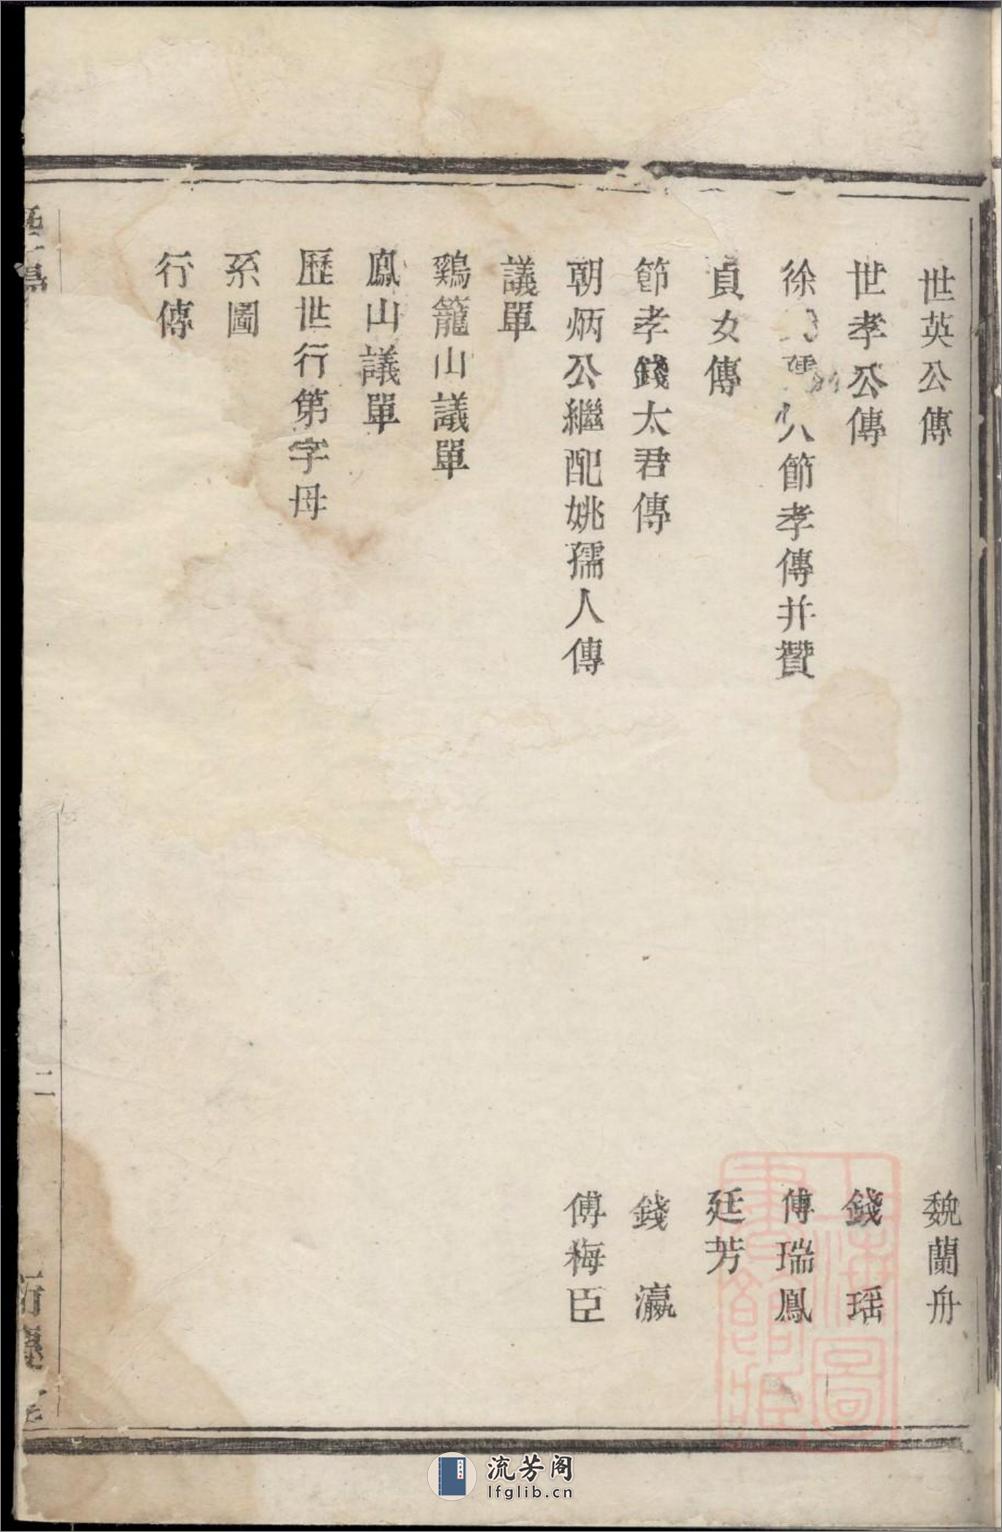 世英公傳 魏蘭舟
世孝公傳 錢瑶
徐 節孝傳并贊 傅瑞鳳
貞女傳 廷芳
節孝錢太君傳 錢瀛
朝炳公繼配姚孺人傳 傅梅臣
議單
鷄籠山議單
鳳山議單
歷世行第字母
系圖
行傳
二
上海圖書館藏
流芳阁
lfglib.cn